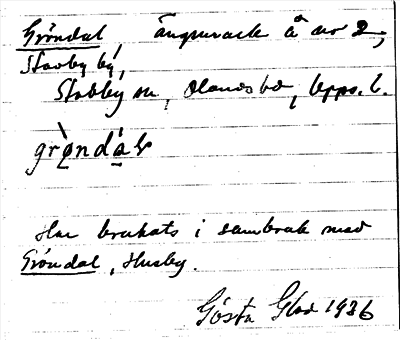 Gröndal, ängsmark å nr 2,
Stavby by,
Stabby sn, Olands hd, Upps. l.
grø̀ndá̱l
Har brukats i sambruk med
Gröndal, Husby.
Gösta Glad 1936